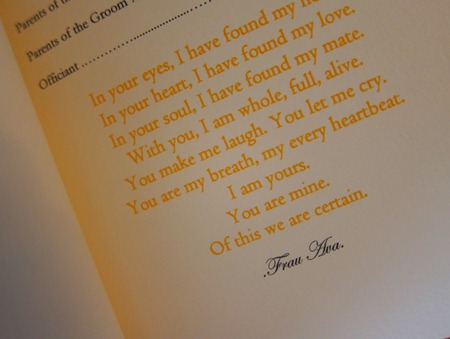 Parents of the
Parents of the Groom
Officiant
In your eyes, I have found my
In your heart, I have found my love.
In your soul, I have found my mate.
With you, I am whole, full, alive.
You make me laugh. You let me cry.
You are my breath, my every heartbeat.
I am yours.
You are mine.
Of this we are certain.
.Frau Ava.